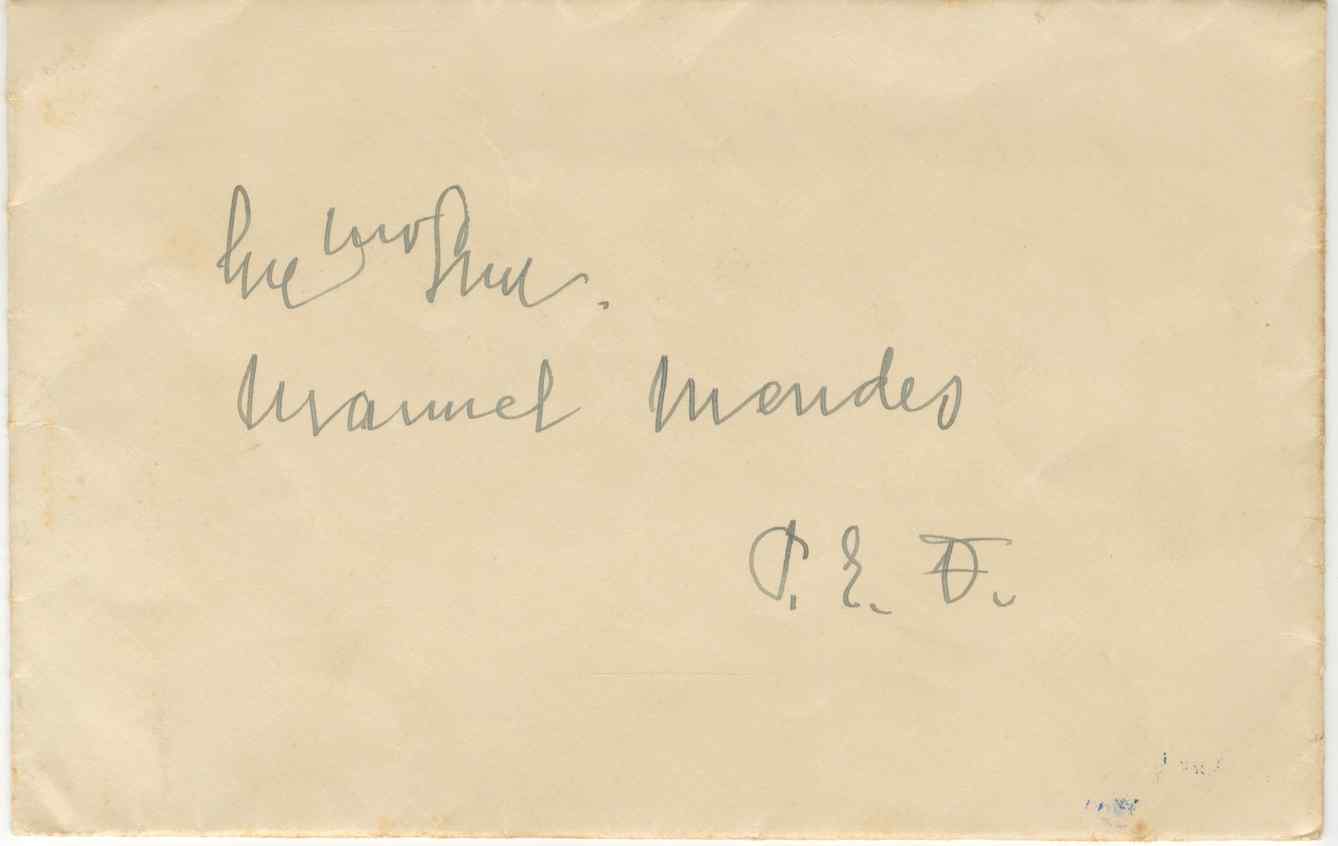 Exmo Snr.
Manuel Mendes
P. E. F.